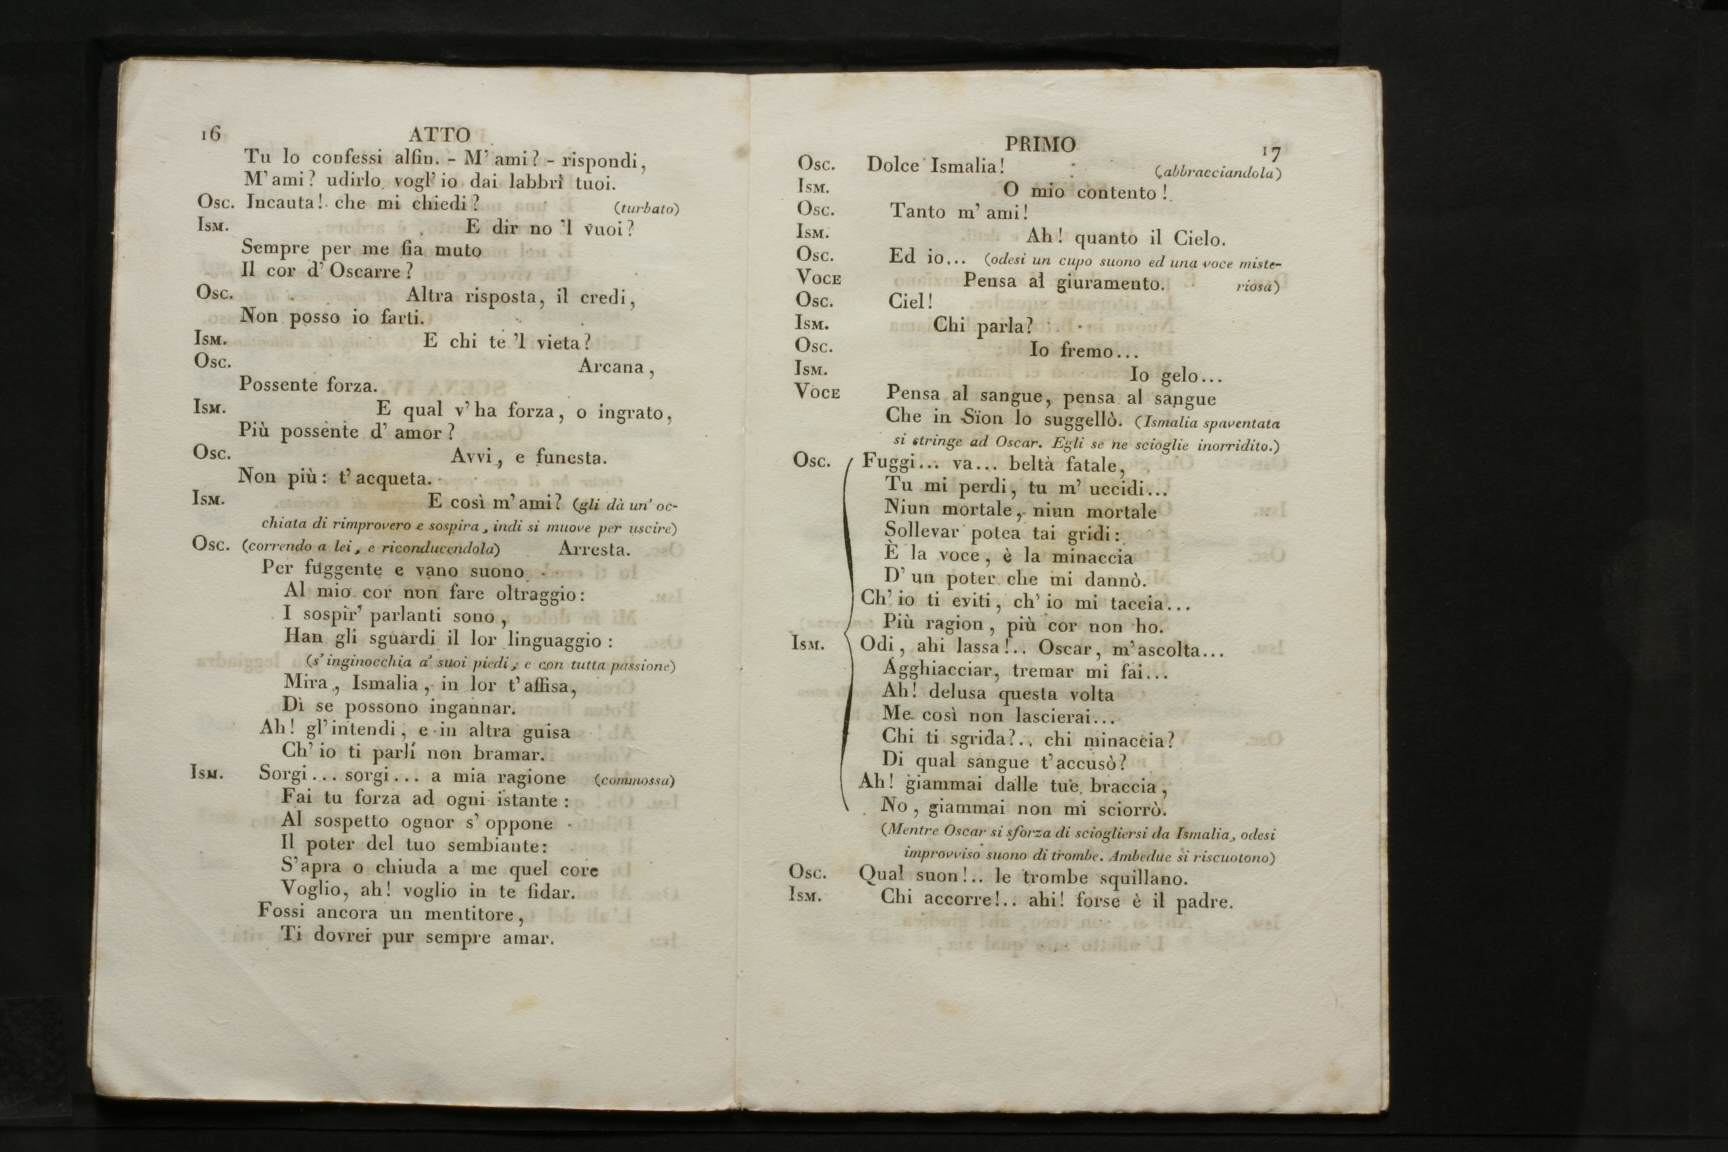 16 ATTO
Tu lo confessi alfin. - M' ami? - rispondi,
M' ami? udirlo vogl' io dai labbri tuoi.
Osc. Incauta! che mi chiedi? (turbato)
Ism. E dir no 'l vuoi?
Sempre per me fia muto
Il cor d' Oscarre?
Osc. Altra risposta, il credi,
Non posso io farti.
Ism. E chi te 'l vieta?
Osc. Arcana,
Possente forza.
Ism. E qual v' ha forza, o ingrato,
Più possente d' amor?
Osc. Avvi, e funesta.
Non più: t' acqueta.
Ism. E così m' ami? (gli dà un' oc-
chiata di rimprovero e sospira, indi si muove per uscire)
Osc. (correndo a lei, e riconducendola) Arresta.
Per fuggente e vano suono
Al mio cor non fare oltraggio:
I sospir' parlanti sono,
Han gli sguardi il lor linguaggio:
(s' inginocchia a' suoi piedi, e con tutta passione)
Mira, Ismalia, in lor t' affisa,
Dì se possono ingannar.
Ah! gl' intendi, e in altra guisa
Ch' io ti parli non bramar.
Ism. Sorgi... sorgi... a mia ragione (commossa)
Fai tu forza ad ogni istante:
Al sospetto ognor s' oppone
Il poter del tuo sembiante:
S' apra o chiuda a me quel core
Voglio, ah! voglio in te fidar.
Fossi ancora un mentitore,
Ti dovrei pur sempre amar.
PRIMO 17
Osc. Dolce Ismalia! (abbracciandola)
Ism. O mio contento!
Osc. Tanto m' ami!
Ism. Ah! quanto il Cielo.
Osc. Ed io... (odesi un cupo suono ed una voce miste-
Voce Pensa al giuramento. riosa)
Osc. Ciel!
Ism. Chi parla?
Osc. Io fremo...
Ism. Io gelo...
Voce Pensa al sangue, pensa al sangue
Che in Sïon lo suggellò. (Ismalia spaventata
si stringe ad Oscar. Egli se ne scioglie inorridito.)
Osc. Fuggi... va... beltà fatale,
Tu mi perdi, tu m' uccidi...
Niun mortale, niun mortale
Sollevar potea tai gridi:
È la voce, è la minaccia
D' un poter che mi dannò.
Ch' io ti eviti, ch' io mi taccia...
Più ragion, più cor non ho.
Ism. Odi, ahi lassa!.. Oscar, m' ascolta...
Agghiacciar, tremar mi fai...
Ah! delusa questa volta
Me così non lascierai...
Chi ti sgrida?.. chi minaccia?
Di qual sangue t' accusò?
Ah! giammai dalle tue braccia,
No, giammai non mi sciorrò.
(Mentre Oscar si sforza di sciogliersi da Ismalia, odesi
improvviso suono di trombe. Ambedue si riscuotono)
Osc. Qual suon!.. le trombe squillano.
Ism. Chi accorre!.. ahi! forse è il padre.